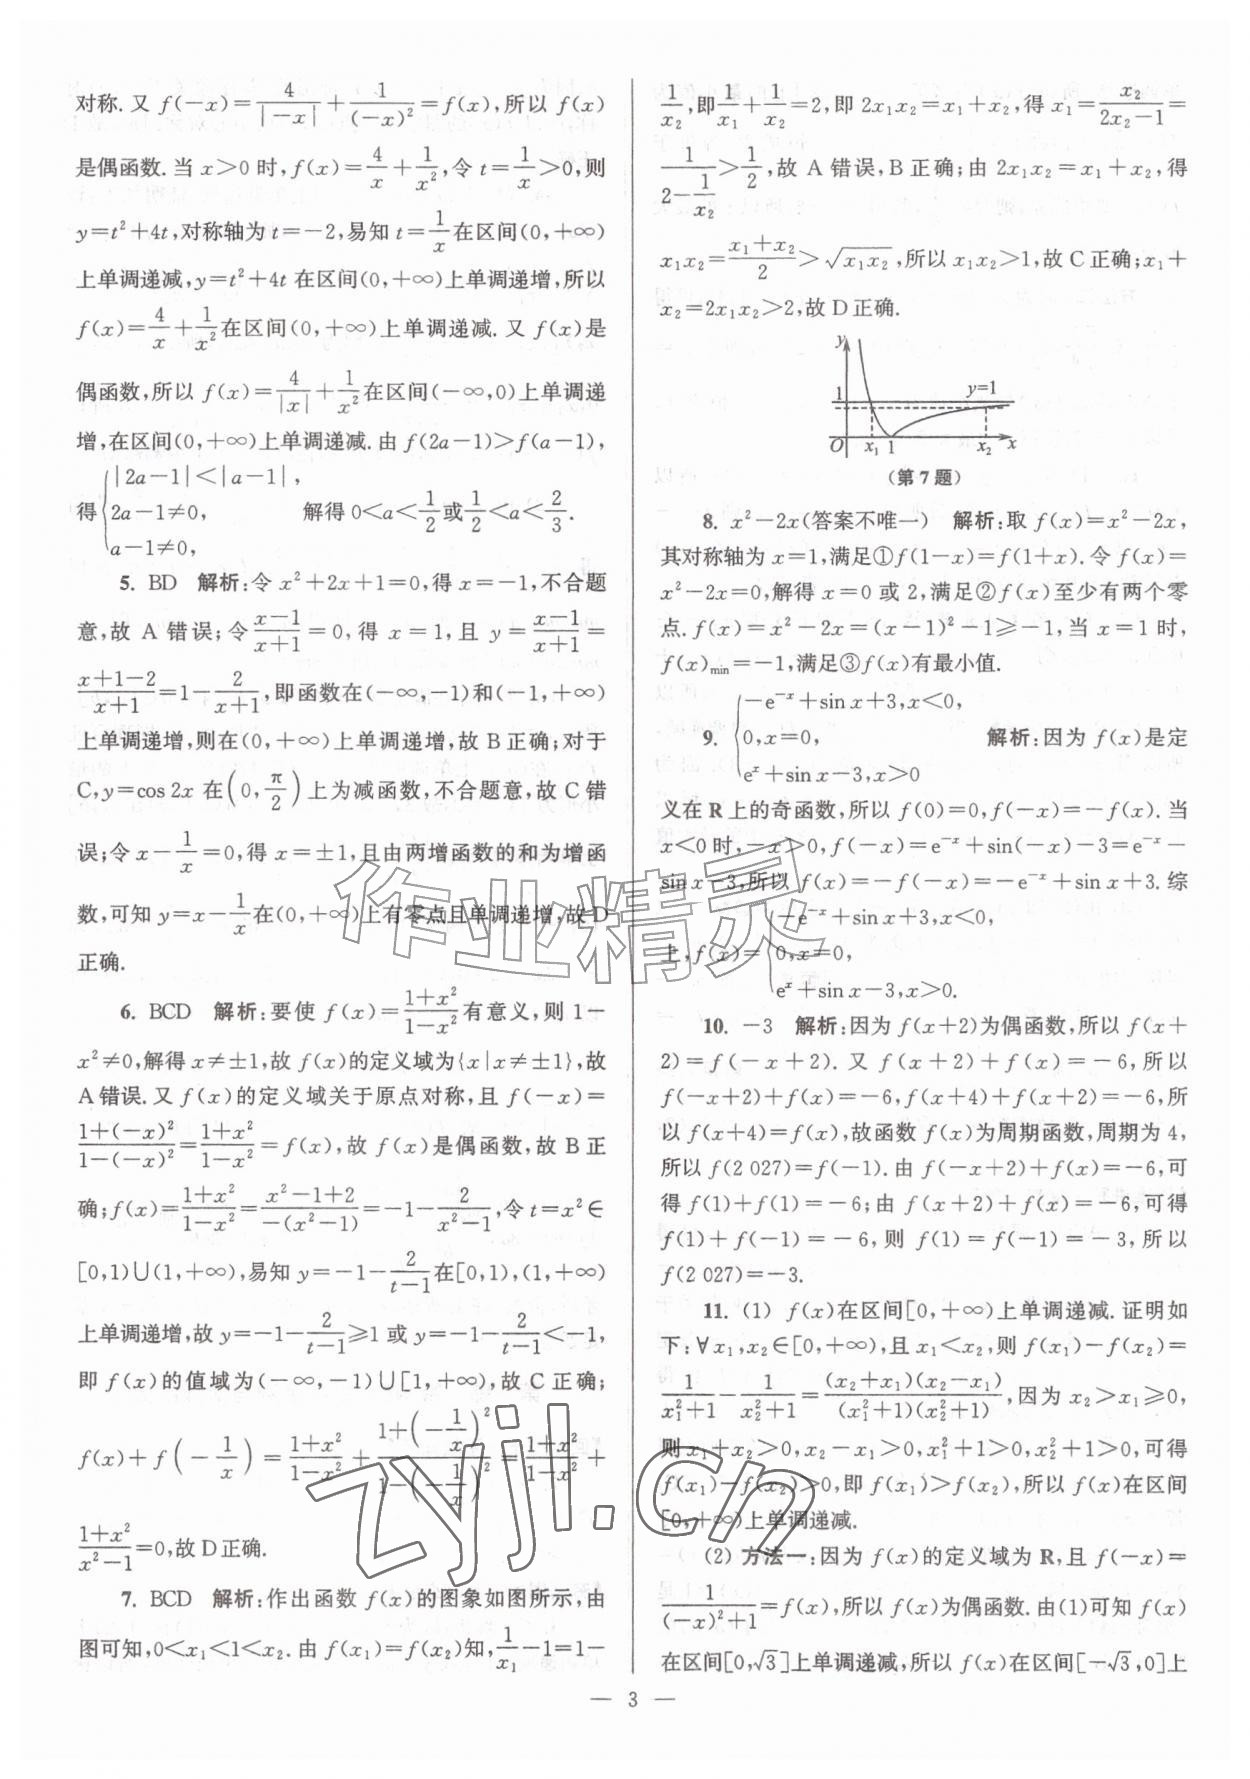 对称.又 f(−x)=4/|−x|+1/(−x)²=f(x),所以 f(x)
是偶函数.当 x>0 时,f(x)=4/x+1/x²,令 t=1/x>0,则
y=t²+4t,对称轴为 t=−2,易知 t=1/x在区间(0,+∞)
上单调递减,y=t²+4t 在区间(0,+∞)上单调递增,所以
f(x)=4/x+1/x²在区间(0,+∞)上单调递减.又 f(x)是
偶函数,所以 f(x)=4/|x|+1/x²在区间(−∞,0)上单调递
增,在区间(0,+∞)上单调递减.由 f(2a−1)>f(a−1),
得{|2a−1|<|a−1|,
2a−1≠0, 解得 0<a<1/2或1/2<a<2/3.
a−1≠0,
5. BD 解析:令 x²+2x+1=0,得 x=−1,不合题
意,故 A 错误;令(x−1)/(x+1)=0,得 x=1,且 y=(x−1)/(x+1)=
(x+1−2)/(x+1)=1−2/(x+1),即函数在(−∞,−1)和(−1,+∞)
上单调递增,则在(0,+∞)上单调递增,故 B 正确;对于
C,y=cos 2x 在(0,π/2)上为减函数,不合题意,故 C 错
误;令 x−1/x=0,得 x=±1,且由两增函数的和为增函
数,可知 y=x−1/x在(0,+∞)上有零点且单调递增,故 D
正确.
6. BCD 解析:要使 f(x)=(1+x²)/(1−x²)有意义,则 1−
x²≠0,解得 x≠±1,故 f(x)的定义域为{x|x≠±1},故
A 错误.又 f(x)的定义域关于原点对称,且 f(−x)=
(1+(−x)²)/(1−(−x)²)=(1+x²)/(1−x²)=f(x),故 f(x)是偶函数,故 B 正
确;f(x)=(1+x²)/(1−x²)=(x²−1+2)/(−(x²−1))=−1−2/(x²−1),令 t=x²∈
[0,1)∪(1,+∞),易知 y=−1−2/(t−1)在[0,1),(1,+∞)
上单调递增,故 y=−1−2/(t−1)≥1 或 y=−1−2/(t−1)<−1,
即 f(x)的值域为(−∞,−1)∪[1,+∞),故 C 正确;
f(x)+f(−1/x)=(1+x²)/(1−x²)+(1+(−1/x)²)/(1−(−1/x)²)=(1+x²)/(1−x²)+
(1+x²)/(x²−1)=0,故 D 正确.
7. BCD 解析:作出函数 f(x)的图象如图所示,由
图可知,0<x₁<1<x₂.由 f(x₁)=f(x₂)知,1/x₁−1=1−
1/x₂,即1/x₁+1/x₂=2,即 2x₁x₂=x₁+x₂,得 x₁=x₂/(2x₂−1)=
1/(2−1/x₂)>1/2,故 A 错误,B 正确;由 2x₁x₂=x₁+x₂,得
x₁x₂=(x₁+x₂)/2>√(x₁x₂),所以 x₁x₂>1,故 C 正确;x₁+
x₂=2x₁x₂>2,故 D 正确.
y
1 y=1
O x₁ 1 x₂ x
(第 7 题)
8. x²−2x(答案不唯一) 解析:取 f(x)=x²−2x,
其对称轴为 x=1,满足①f(1−x)=f(1+x).令 f(x)=
x²−2x=0,解得 x=0 或 2,满足②f(x)至少有两个零
点.f(x)=x²−2x=(x−1)²−1≥−1,当 x=1 时,
f(x)min=−1,满足③f(x)有最小值.
9. {−e⁻ˣ+sin x+3,x<0,
0,x=0, 解析:因为 f(x)是定
eˣ+sin x−3,x>0
义在 R 上的奇函数,所以 f(0)=0,f(−x)=−f(x).当
x<0 时,−x>0,f(−x)=e⁻ˣ+sin(−x)−3=e⁻ˣ−
sin x−3,所以 f(x)=−f(−x)=−e⁻ˣ+sin x+3.综
上,f(x)={−e⁻ˣ+sin x+3,x<0,
0,x=0,
eˣ+sin x−3,x>0.
10. −3 解析:因为 f(x+2)为偶函数,所以 f(x+
2)=f(−x+2).又 f(x+2)+f(x)=−6,所以
f(−x+2)+f(x)=−6,f(x+4)+f(x+2)=−6,所
以 f(x+4)=f(x),故函数 f(x)为周期函数,周期为 4,
所以 f(2 027)=f(−1).由 f(−x+2)+f(x)=−6,可
得 f(1)+f(1)=−6;由 f(x+2)+f(x)=−6,可得
f(1)+f(−1)=−6,则 f(1)=f(−1)=−3,所以
f(2 027)=−3.
11. (1) f(x)在区间[0,+∞)上单调递减.证明如
下:∀x₁,x₂∈[0,+∞),且 x₁<x₂,则 f(x₁)−f(x₂)=
1/(x₁²+1)−1/(x₂²+1)=(x₂+x₁)(x₂−x₁)/((x₁²+1)(x₂²+1)),因为 x₂>x₁≥0,
则 x₁+x₂>0,x₂−x₁>0,x₁²+1>0,x₂²+1>0,可得
f(x₁)−f(x₂)>0,即 f(x₁)>f(x₂),所以 f(x)在区间
[0,+∞)上单调递减.
(2) 方法一:因为 f(x)的定义域为 R,且 f(−x)=
1/((−x)²+1)=f(x),所以 f(x)为偶函数.由(1)可知 f(x)
在区间[0,√3]上单调递减,所以 f(x)在区间[−√3,0]上
— 3 —
作业精灵
zyjl.cn